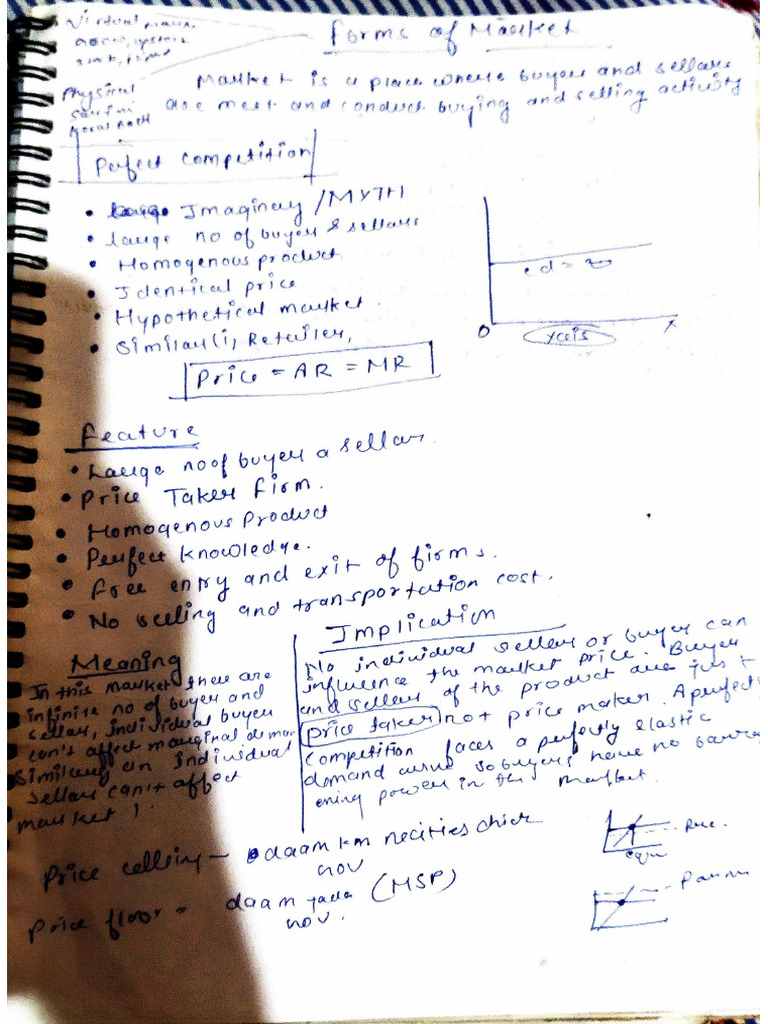 Forms of Market
Physical
Market is a place where buyers and sellers
are meet and conduct buying and selling activity
Perfect Competition
• Imaginary / MYTH
• large no of buyer & sellers
• Homogenous product
• Identical price
• Hypothetical market
• Similar Retailer,
ed = ∞
O X axis X
Price = AR = MR
Feature
• Large no of buyer a sellers.
• Price Taker Firm.
• Homogenous Product
• Perfect knowledge.
• Free entry and exit of firms.
• No selling and transportation cost.
Meaning
In this market there are
infinite no of buyer and
sellers, individual buyer
can't affect marginal deman
Similarly an individual
sellers can't affect
market !
Implication
No individual sellers or buyer can
influence the market price. Buyer
and sellers of the product are just
price taker not price maker. A perfect
Competition faces a perfectly elastic
demand curve so buyers have no barga
ening power in the market.
Price celling – daam km necities
hov
Price floor = daam jada (MSP)
hov.